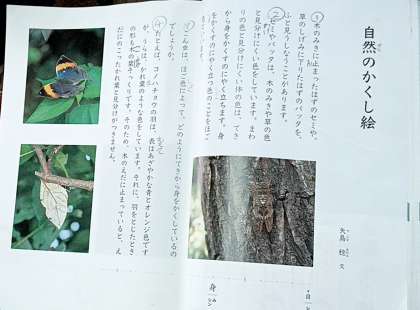 自然のかくし絵
矢島 稔 文
①木のみきに止まったはずのセミや、
草のしげみに下りたはずのバッタを、
ふと見うしなうことがあります。
②セミやバッタは、木のみきや草の色
と見分けにくい色をしています。まわ
りの色と見分けにくい体の色は、てき
から身をかくすのに役立ちます。身
をかくすのに役立つ色のことをほご
③こん虫は、ほご色によって、どのようにてきから身をかくしているの
でしょうか。
④たとえば、コノハチョウの羽は、表はあざやかな青とオレンジ色です
が、うらは、かれ葉のような色をしています。それに、羽をとじたとき
の形も木の葉そっくりです。そのため、木のえだに止まっていると、え
だにのこったかれ葉と見分けがつきません。
身